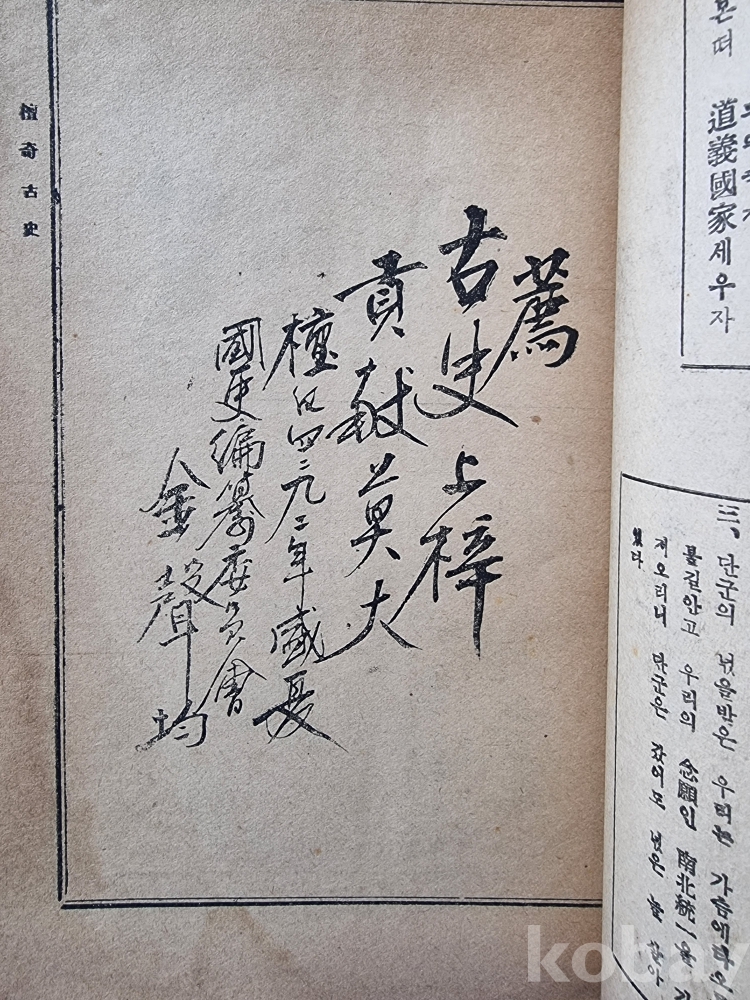 본떠 道義國家세우자
三、단군의 넋을받은 우리는 가슴에타오
불길안고 우리의 念願인 南北統一을
저오리니 단군은 갔어도 넋은 늘 남아
있다
薦
古史上梓
貢献莫大
檀紀四二九二年盛夏
國史編纂委員會
金聲均
檀奇古史
kobay